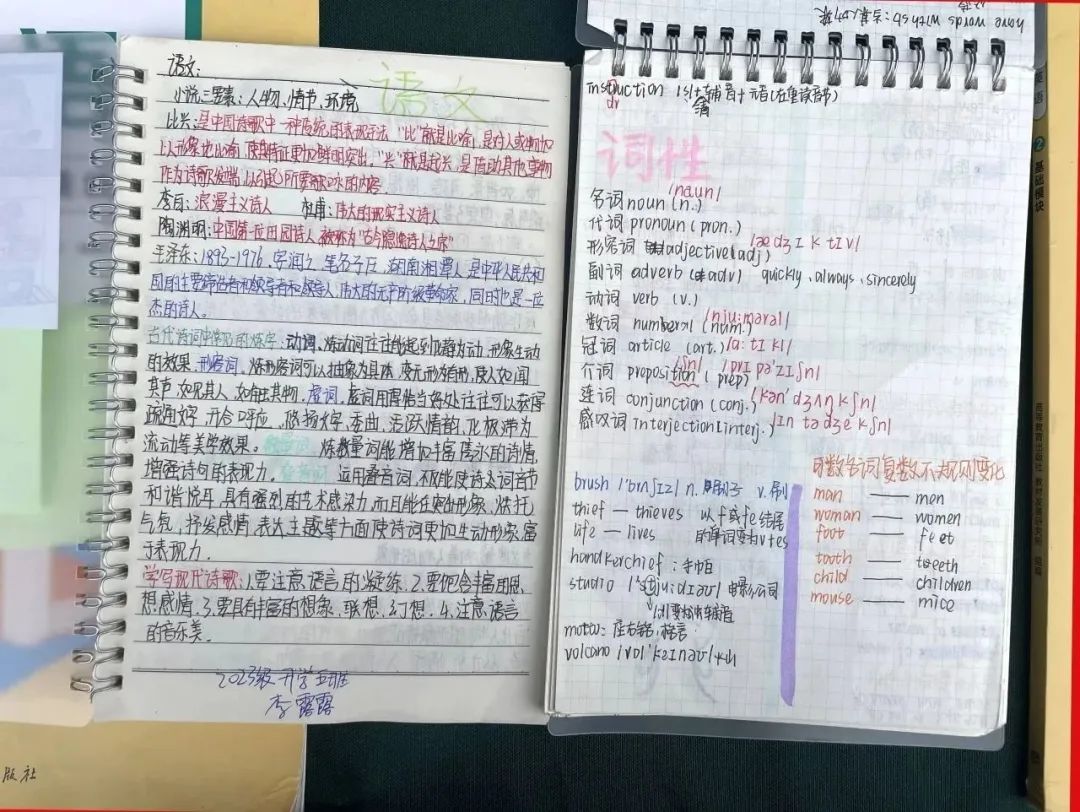 语文
语文:
小说三要素:人物、情节、环境
比兴:是中国诗歌中一种传统的表现手法,"比"就是比喻,是对人或物加
以形象地比喻,使其特征更加鲜明突出,"兴"就是起兴,是借助其他事物
作为诗歌发端,以引起所要歌咏的内容。
李白:浪漫主义诗人 杜甫:伟大的现实主义诗人
陶渊明:中国第一位田园诗人,被称为"古今隐逸诗人之宗"
毛泽东:1893-1976,字润之,笔名子任,湖南湘潭人,是中华人民共和
国的主要缔造者和领导人,伟大的无产阶级革命家,同时也是一位
杰的诗人。
古代诗词中常见的炼字:动词,炼动词往往能起到化静为动,形象生动
的效果,形容词,炼形容词可以抽象为具体,变无形为有形,使人如闻
其声,如见其人,如触其物,虚词,虚词用得恰当好处往往可以获得
疏通文字,开合呼应,悠扬委曲,活跃情韵,化板滞为
流动等美学效果。数量词,炼数量词能增加丰富隽永的诗情,
增强诗句的表现力。叠音词,运用叠音词,不仅能使诗文词音节
和谐悦耳,具有强烈的艺术感染力,而且能在刻形象,烘托
气氛,抒发感情,表达主题等方面使诗词更加生动形象,富
于表现力。
学写现代诗歌:1.要注意语言的凝练,2.要饱含丰富思
想感情,3.要具有丰富的想象,联想,幻想,4.注意语言
的音乐美。
2023级升学五班
李露露
have words with sb:与某人吵架
instruction
dr
词性
名词 noun (n.) /naun/
代词 pronoun (pron.)
形容词 adjective(adj) /ˈædʒɪktɪv/
副词 adverb (adv) quickly、always、sincerely
动词 verb (v.)
数词 numberal (num.) /nju:mərəl/
冠词 article (art.) /a:tɪkl/
介词 preposition (prep) /prɪpəˈzɪʃn/
连词 conjunction (conj.) /kənˈdʒʌŋkʃn/
感叹词 interjection(interj.) /ɪntədʒekʃn/
可数名词复数不规则变化
man —— men
woman —— women
foot —— feet
tooth —— teeth
child —— children
mouse —— mice
brush n.刷子 v.刷
thief — thieves 以f或fe结尾
life — lives 的单词变为v+es
handkerchief:手帕
studio 电影公司
motto:座右铭,格言
volcano 火山
英语
2
基础模块
高等教育出版社
版社